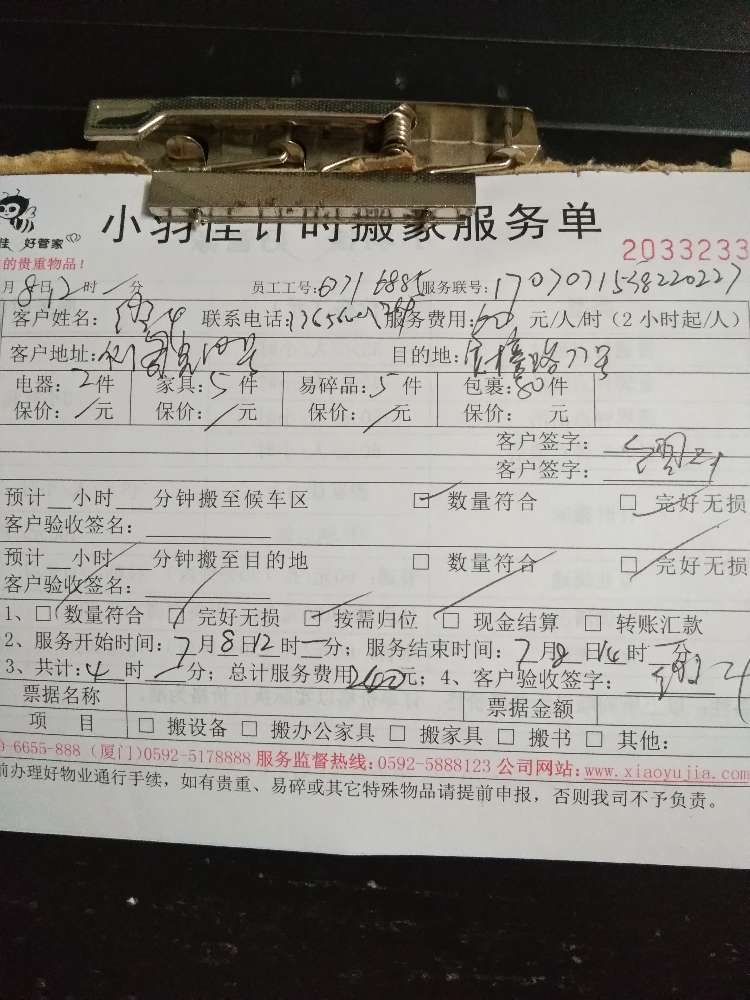 佳 好管家
小羽佳计时搬家服务单
的贵重物品！
2033233
月8日12时/分 员工工号：6371 6885 服务联号：1707071538220227
客户姓名： 联系电话： 服务费用：60元/人/时（2小时起/人）
客户地址： 目的地：
电器：2件 家具：5件 易碎品：5件 包裹：80件
保价：/元 保价：/元 保价：/元 保价： 元
客户签字：
客户签字：
预计__小时___分钟搬至候车区 ☑ 数量符合 □ 完好无损
客户验收签名：
预计__小时___分钟搬至目的地 □ 数量符合 □ 完好无损
客户验收签名：
1、□ 数量符合 □ 完好无损 □ 按需归位 □ 现金结算 □ 转账汇款
2、服务开始时间：7月8日12时一分；服务结束时间：7月8日14时一分
3、共计：4时一分；总计服务费用240元；4、客户验收签字：
票据名称 票据金额
项 目 □ 搬设备 □ 搬办公家具 □ 搬家具 □ 搬书 □ 其他：
0-6655-888（厦门）0592-5178888 服务监督热线：0592-5888123 公司网站：www.xiaoyujia.com
前办理好物业通行手续，如有贵重、易碎或其它特殊物品请提前申报，否则我司不予负责。